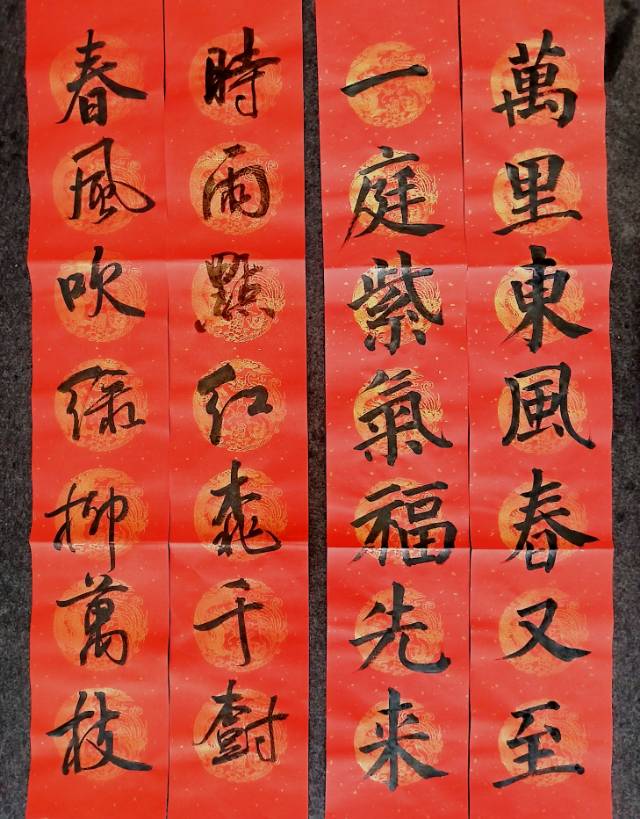 萬里東風春又至
一庭紫氣福先来
時雨點紅桃千樹
春風吹绿柳萬枝